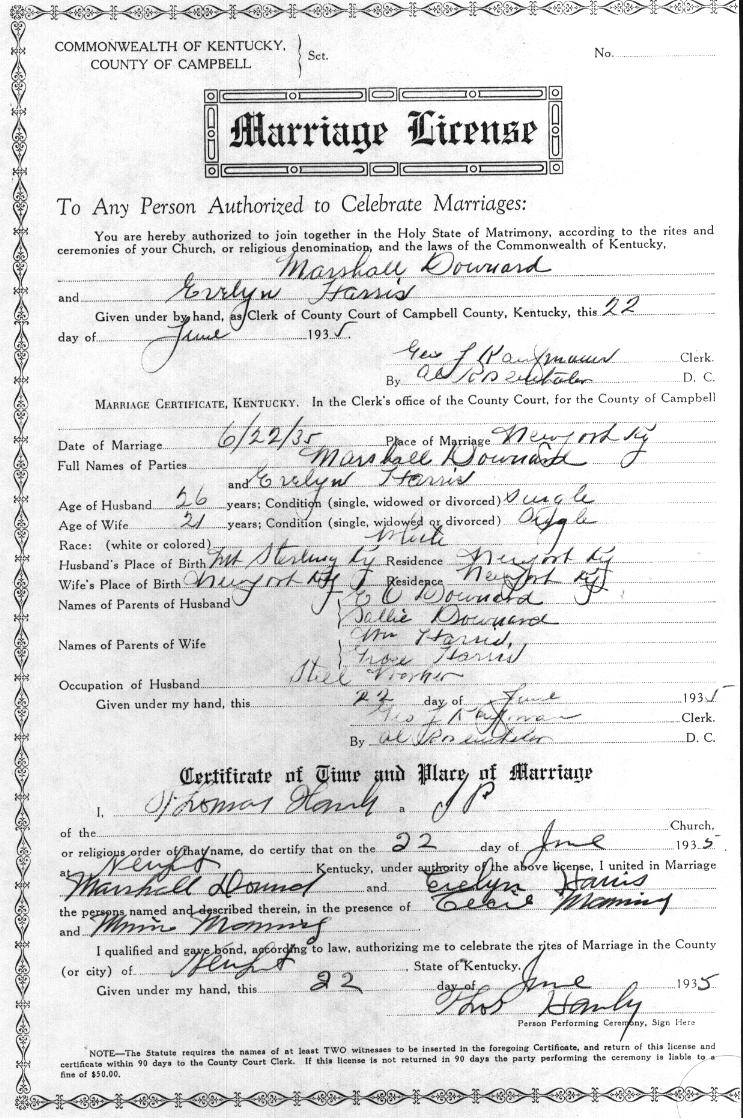 COMMONWEALTH OF KENTUCKY,
COUNTY OF CAMPBELL
Sct.
No.
Marriage License
To Any Person Authorized to Celebrate Marriages:
You are hereby authorized to join together in the Holy State of Matrimony, according to the rites and
ceremonies of your Church, or religious denomination, and the laws of the Commonwealth of Kentucky,
Marshall Downard
and Evelyn Harris
Given under by hand, as Clerk of County Court of Campbell County, Kentucky, this 22
day of June 1935.
Geo J Kaufmann Clerk.
By Al Rosenthaler D. C.
MARRIAGE CERTIFICATE, KENTUCKY. In the Clerk's office of the County Court, for the County of Campbell
Date of Marriage 6/22/35 Place of Marriage Newport Ky
Full Names of Parties Marshall Downard
and Evelyn Harris
Age of Husband 26 years; Condition (single, widowed or divorced) Single
Age of Wife 21 years; Condition (single, widowed or divorced)
Race: (white or colored) White
Husband's Place of Birth Mt Sterling Ky Residence Newport Ky
Wife's Place of Birth Newport Ky Residence Newport Ky
Names of Parents of Husband E C Downard
Sallie Downard
Names of Parents of Wife Wm Harris,
Harris
Occupation of Husband Steel Worker
Given under my hand, this 22 day of June 1935
Geo J Kaufmann Clerk.
By Al Rosenthaler D. C.
Certificate of Time and Place of Marriage
I, Thomas Hanly a J P
of the Church,
or religious order of that name, do certify that on the 22 day of June 1935.
at Newpt Kentucky, under authority of the above license, I united in Marriage
Marshall and Evelyn Harris
the persons named and described therein, in the presence of Manning
and Manning
I qualified and gave bond, according to law, authorizing me to celebrate the rites of Marriage in the County
(or city) of Newpt, State of Kentucky.
Given under my hand, this 22 day of June 1935
Thos Hanly
Person Performing Ceremony, Sign Here
NOTE—The Statute requires the names of at least TWO witnesses to be inserted in the foregoing Certificate, and return of this license and
certificate within 90 days to the County Court Clerk. If this license is not returned in 90 days the party performing the ceremony is liable to a
fine of $50.00.